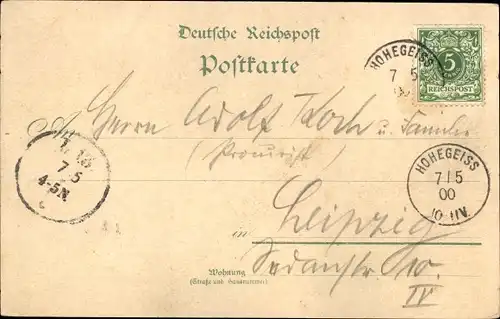 Deutsche Reichspost
Postkarte
HOHEGEISS
7 5
00
5
REICHSPOST
An Herrn Adolf Koch u. Familie
(Prokurist)
7 5
4-5N
HOHEGEISS
7/5
00
in Leipzig
Sedanstraße 10.
IV
Wohnung
(Straße und Hausnummer)